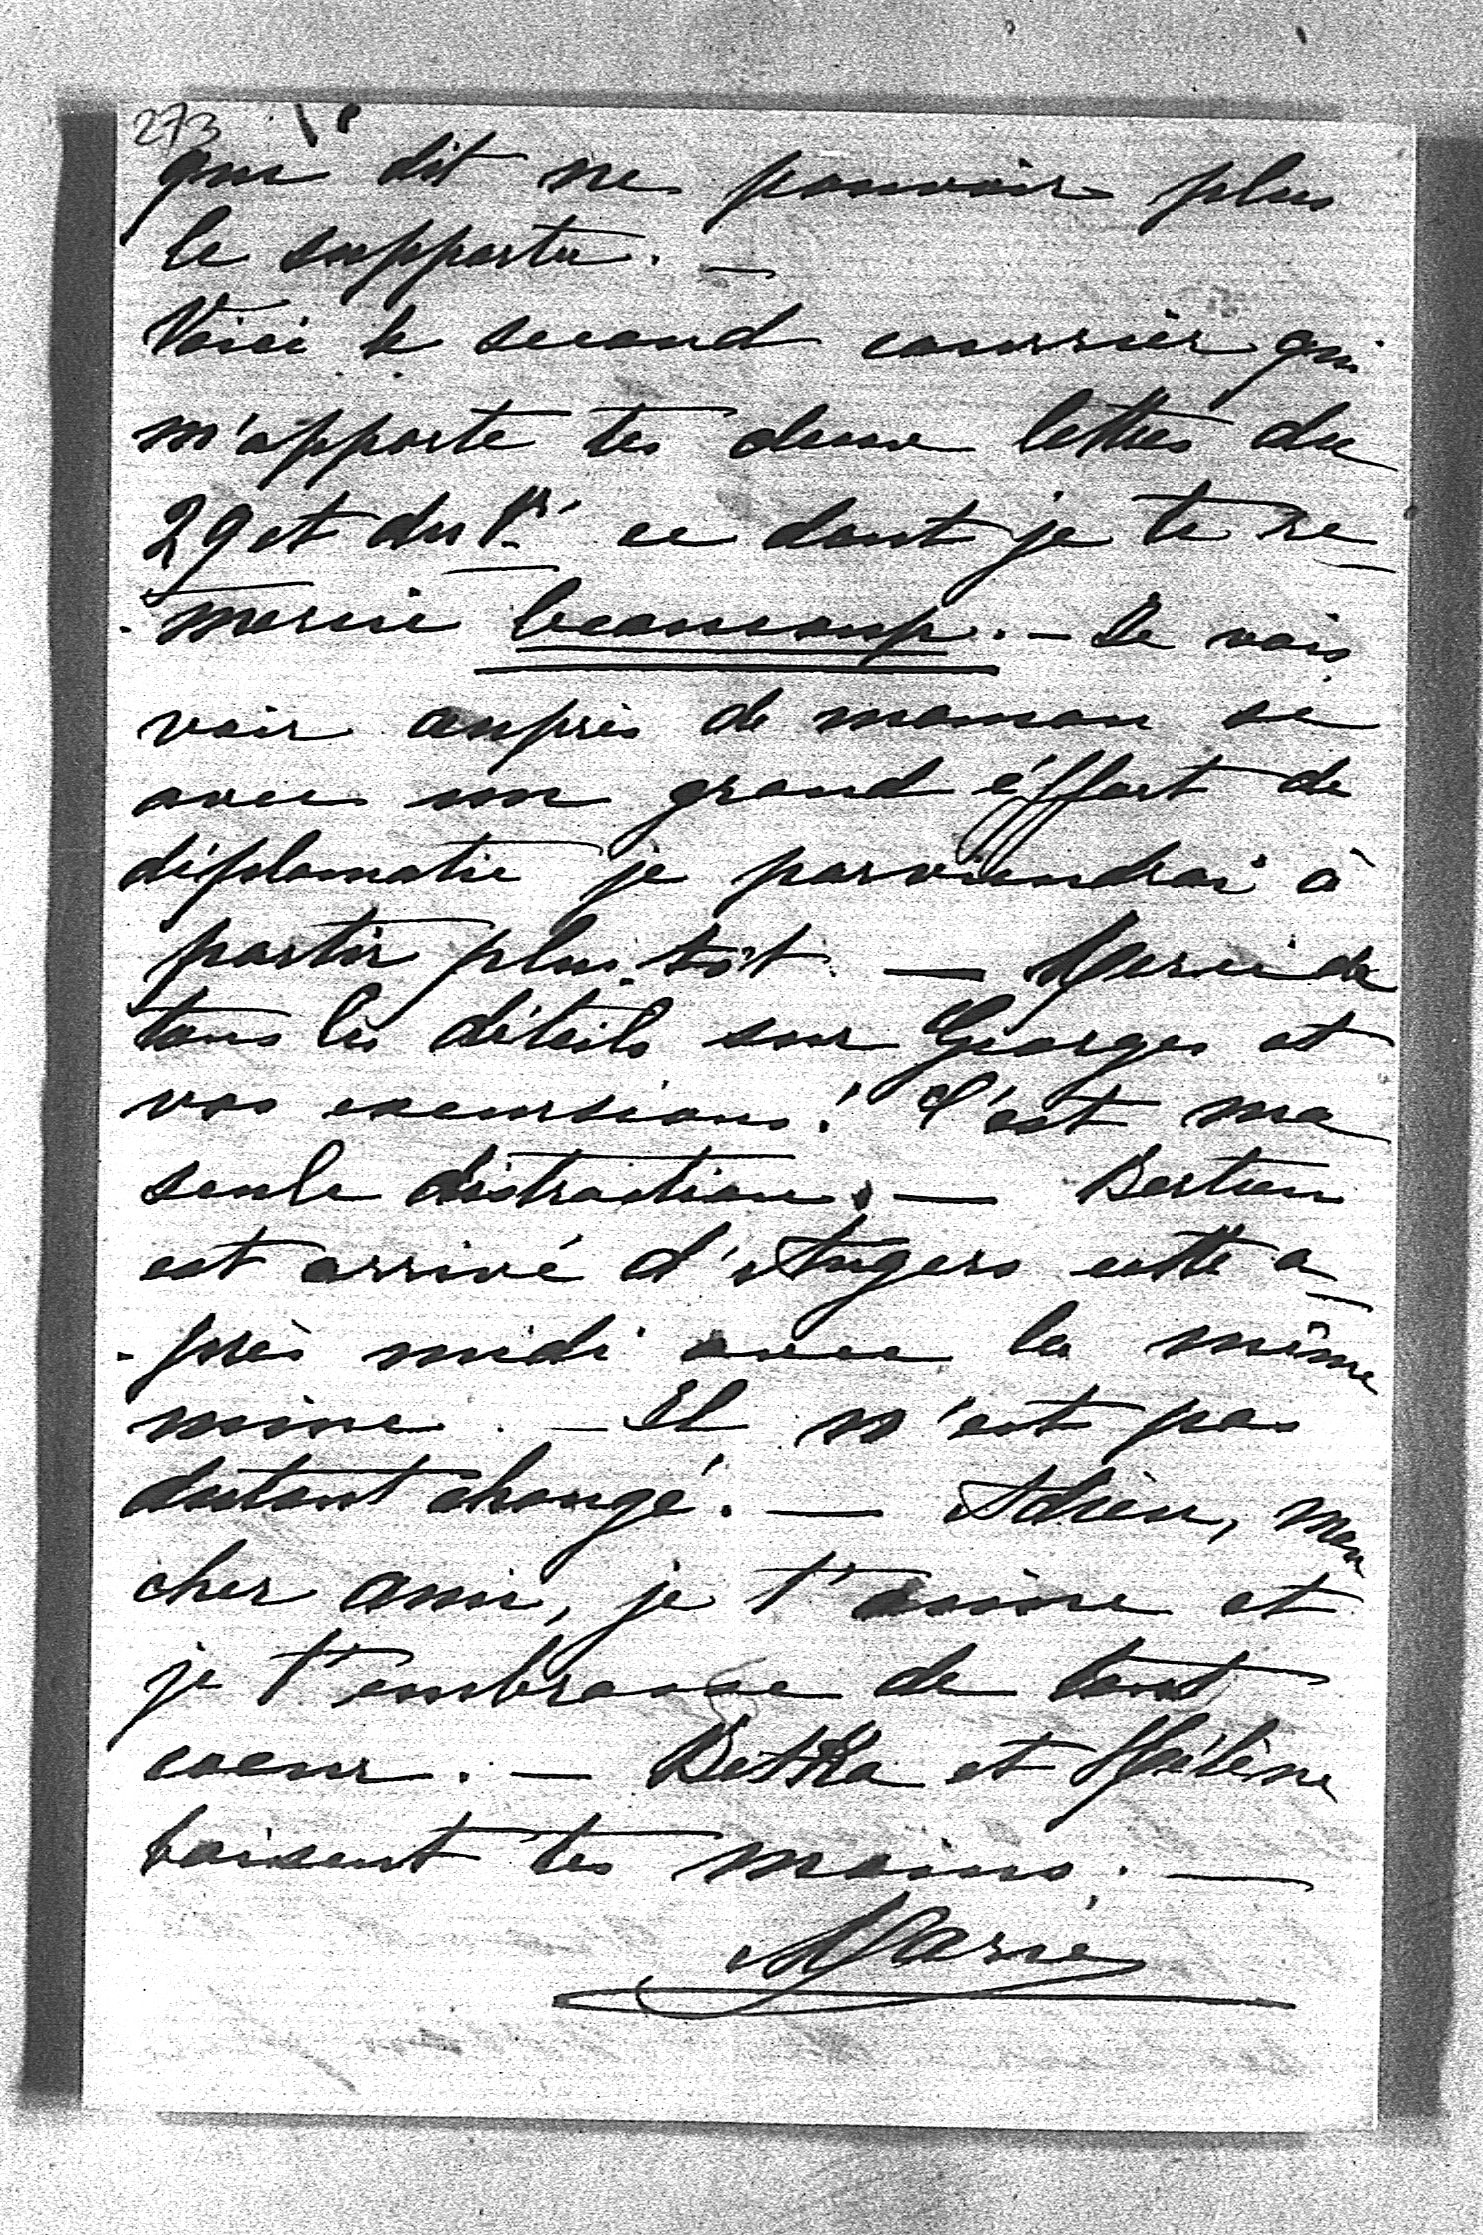 273
qui dit ne pouvoir plus
le supporter. —
Voici le second courrier qui
m'apporte tes deux lettres du
29 et du 1er ce dont je te re-
-mercie beaucoup. — Je vais
voir auprès de maman si
avec un grand éffort de
diplomatie je parviendrai à
partir plus tôt — Merci de
tous les détails sur Georges et
vos excursions! C'est ma
seule distraction. — Bertren
est arrivé d'Angers cette a-
-près midi avec la même
mine. — Il n'est pas
du tout changé. — Adieu, mon
cher ami, je t'aime et
je t'embrasse de tout
coeur. — Betka et Hélène
baisent tes mains. —
Marie